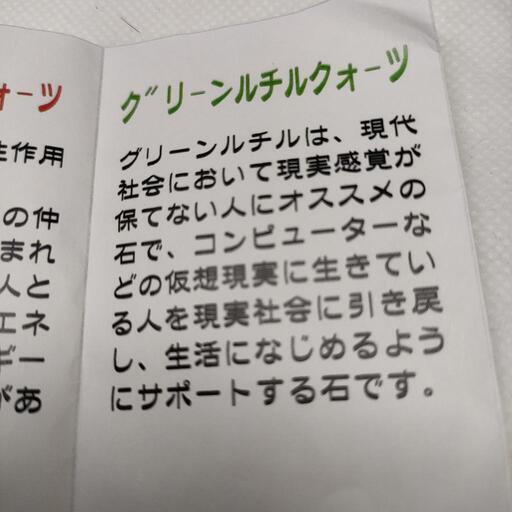 ォーツ
性作用
の仲
まれ
人と
エネ
ギー
があ
グリーンルチルクォーツ
グリーンルチルは、現代
社会において現実感覚が
保てない人にオススメの
石で、コンピューターな
どの仮想現実に生きてい
る人を現実社会に引き戻
し、生活になじめるよう
にサポートする石です。